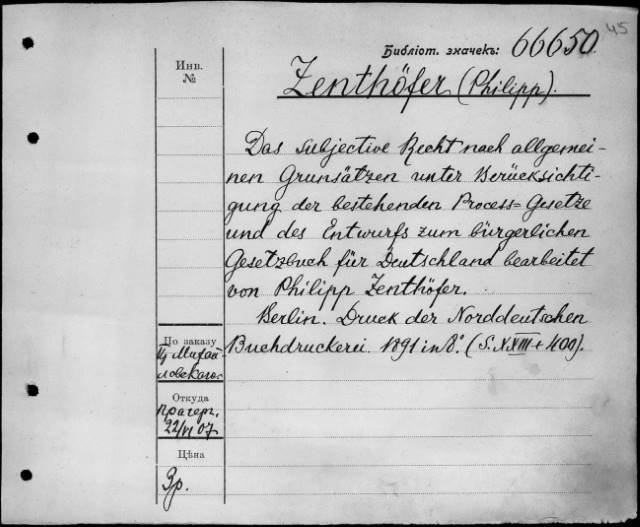 45
Библіот. значекъ: 66650
Инв.
№
Zenthöfer (Philipp).
Das subjective Recht nach allgemei-
nen Grunsätzen unter Berücksichti-
gung der bestehenden Process=Gesetze
und des Entwurfs zum bürgerlichen
Gesetzbuch für Deutschland bearbeitet
von Philipp Zenthöfer.
Berlin. Druck der Norddeutschen
Buchdruckerei. 1891 in 8°. (S. XXIII + 400).
По заказу
Михай-
ловскаго
Откуда
Прагеръ.
22/VI 07
Цѣна
3р.